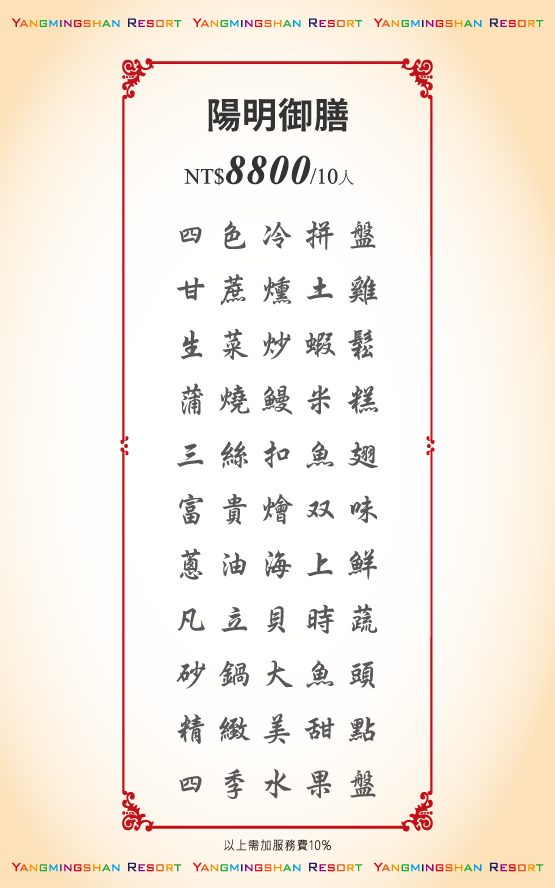 YANGMINGSHAN RESORT YANGMINGSHAN RESORT YANGMINGSHAN RESORT
陽明御膳
NT$8800/10人
四色冷拼盤
甘蔗燻土雞
生菜炒蝦鬆
蒲燒鰻米糕
三絲扣魚翅
富貴燴双味
蔥油海上鮮
凡立貝時蔬
砂鍋大魚頭
精緻美甜點
四季水果盤
以上需加服務費10%
YANGMINGSHAN RESORT YANGMINGSHAN RESORT YANGMINGSHAN RESORT